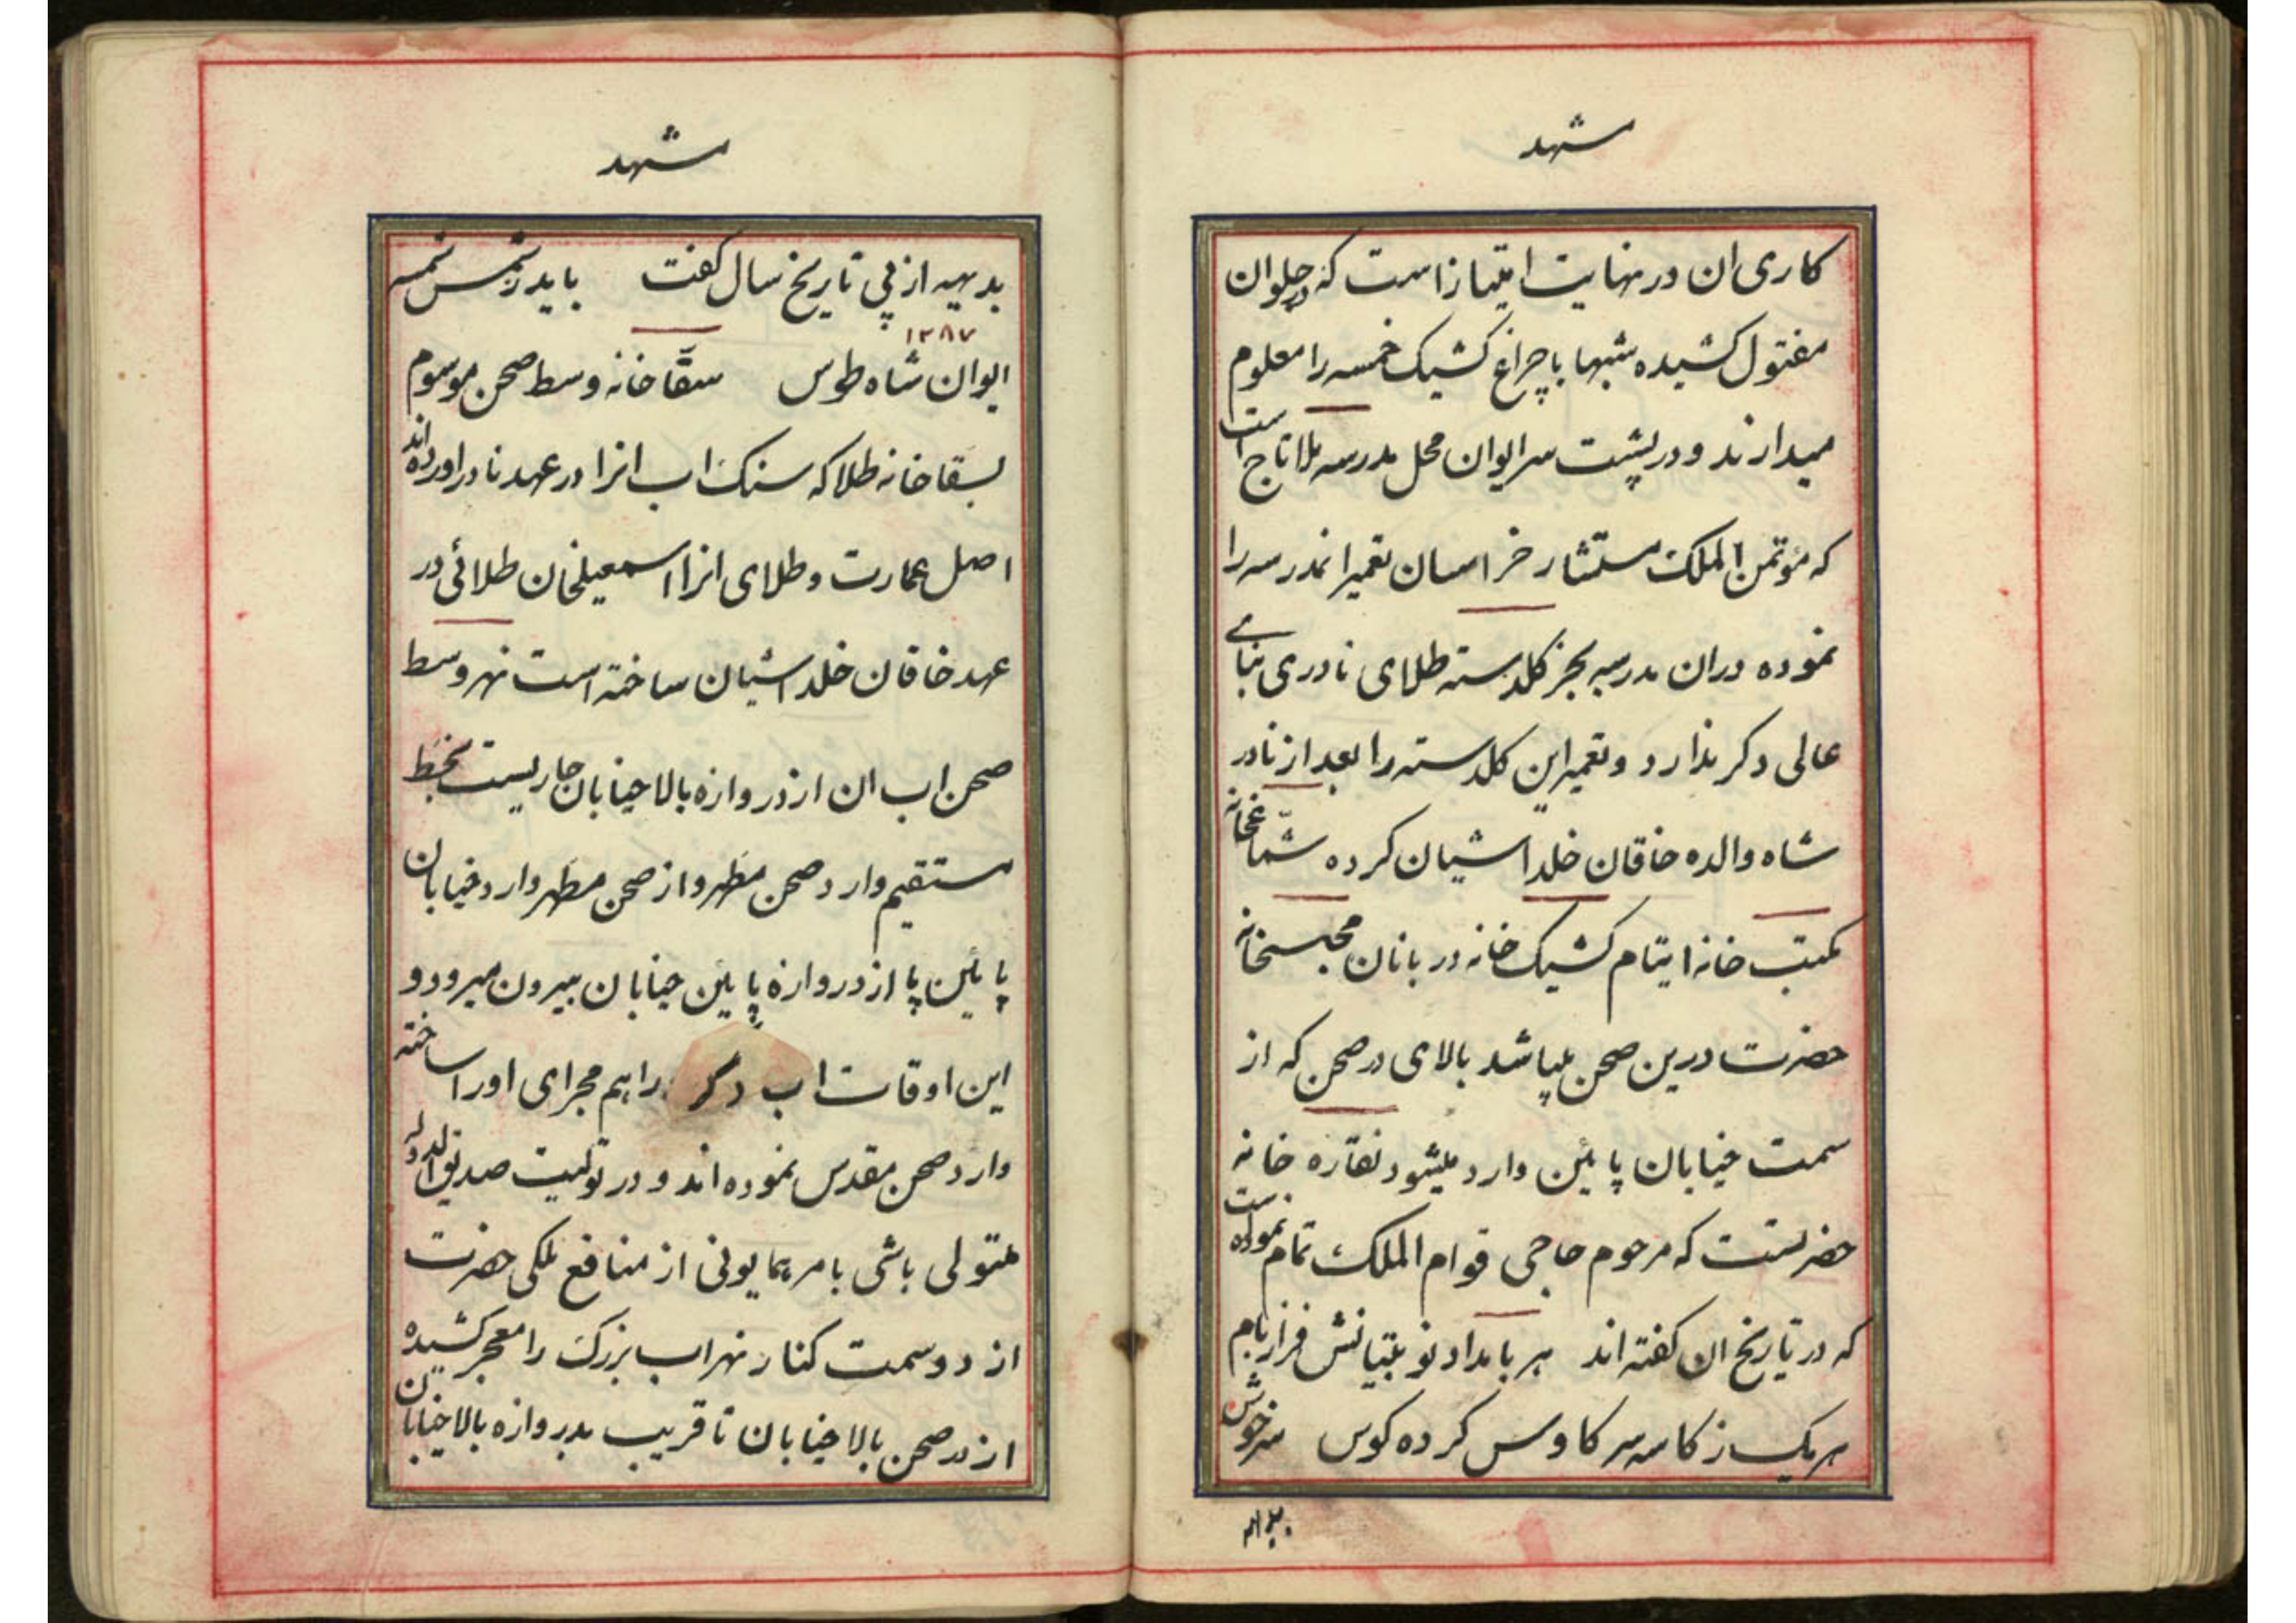 مشهد
کاری ان در نهایت امتیاز است که در جلوان
مفتول کشیده شبها با چراغ کشیک خمسه را معلوم
میدارند و در پشت سر ایوان محل مدرسه ملا تاج است
که مؤتمن الملک مستشار خراسان تعمیر انمدرسه را
نموده دران مدرسه بجز کلدسته طلای نادری بنائی
عالی دکر ندارد و تعمیر این کلدسته را بعد از نادر
شاه والده خاقان خلد اشیان کرده شماعخانه
مکتب خانه ایتام کشیک خانه دربانان محبسخانه
حضرت درین صحن میباشد بالای در صحن که از
سمت خیابان پائین وارد میشود نقاره خانه
حضرتست که مرحوم حاجی قوام الملک تمام نموده است
که در تاریخ ان کفته اند هر بامداد نوبتیانش فراز بام
هریک ز کاسه سر کاوس کرده کوس سرخوش
مشهد
بدیهه از پی تاریخ سال کفت باید ز شمس شمسه
١٢٨٧
ایوان شاه طوس سقاخانه وسط صحن موسوم
بسقاخانه طلا که سنک اب انرا در عهد نادر اورده اند
اصل عمارت و طلای انرا اسمعیلخان طلائی در
عهد خاقان خلد اشیان ساخته است نهر وسط
صحن اب ان از دروازه بالا خیابان جاریست بخط
مستقیم وارد صحن مطهر و از صحن مطهر وارد خیابان
پائین پا از دروازه پایئن خیابان بیرون میرود و
این اوقات اب دکر را هم مجرای او را ساخته
وارد صحن مقدس نموده اند و در تولیت صدیق الدوله
متولی باشی بامر همایونی از منافع ملکی حضرت
از دو سمت کنار نهر اب بزرک را معجر کشیده
از در صحن بالا خیابان تا قریب بدروازه بالا خیابان